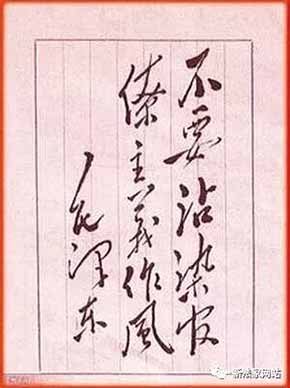 不要沾染官
僚主义作风
毛泽东
新法家网站